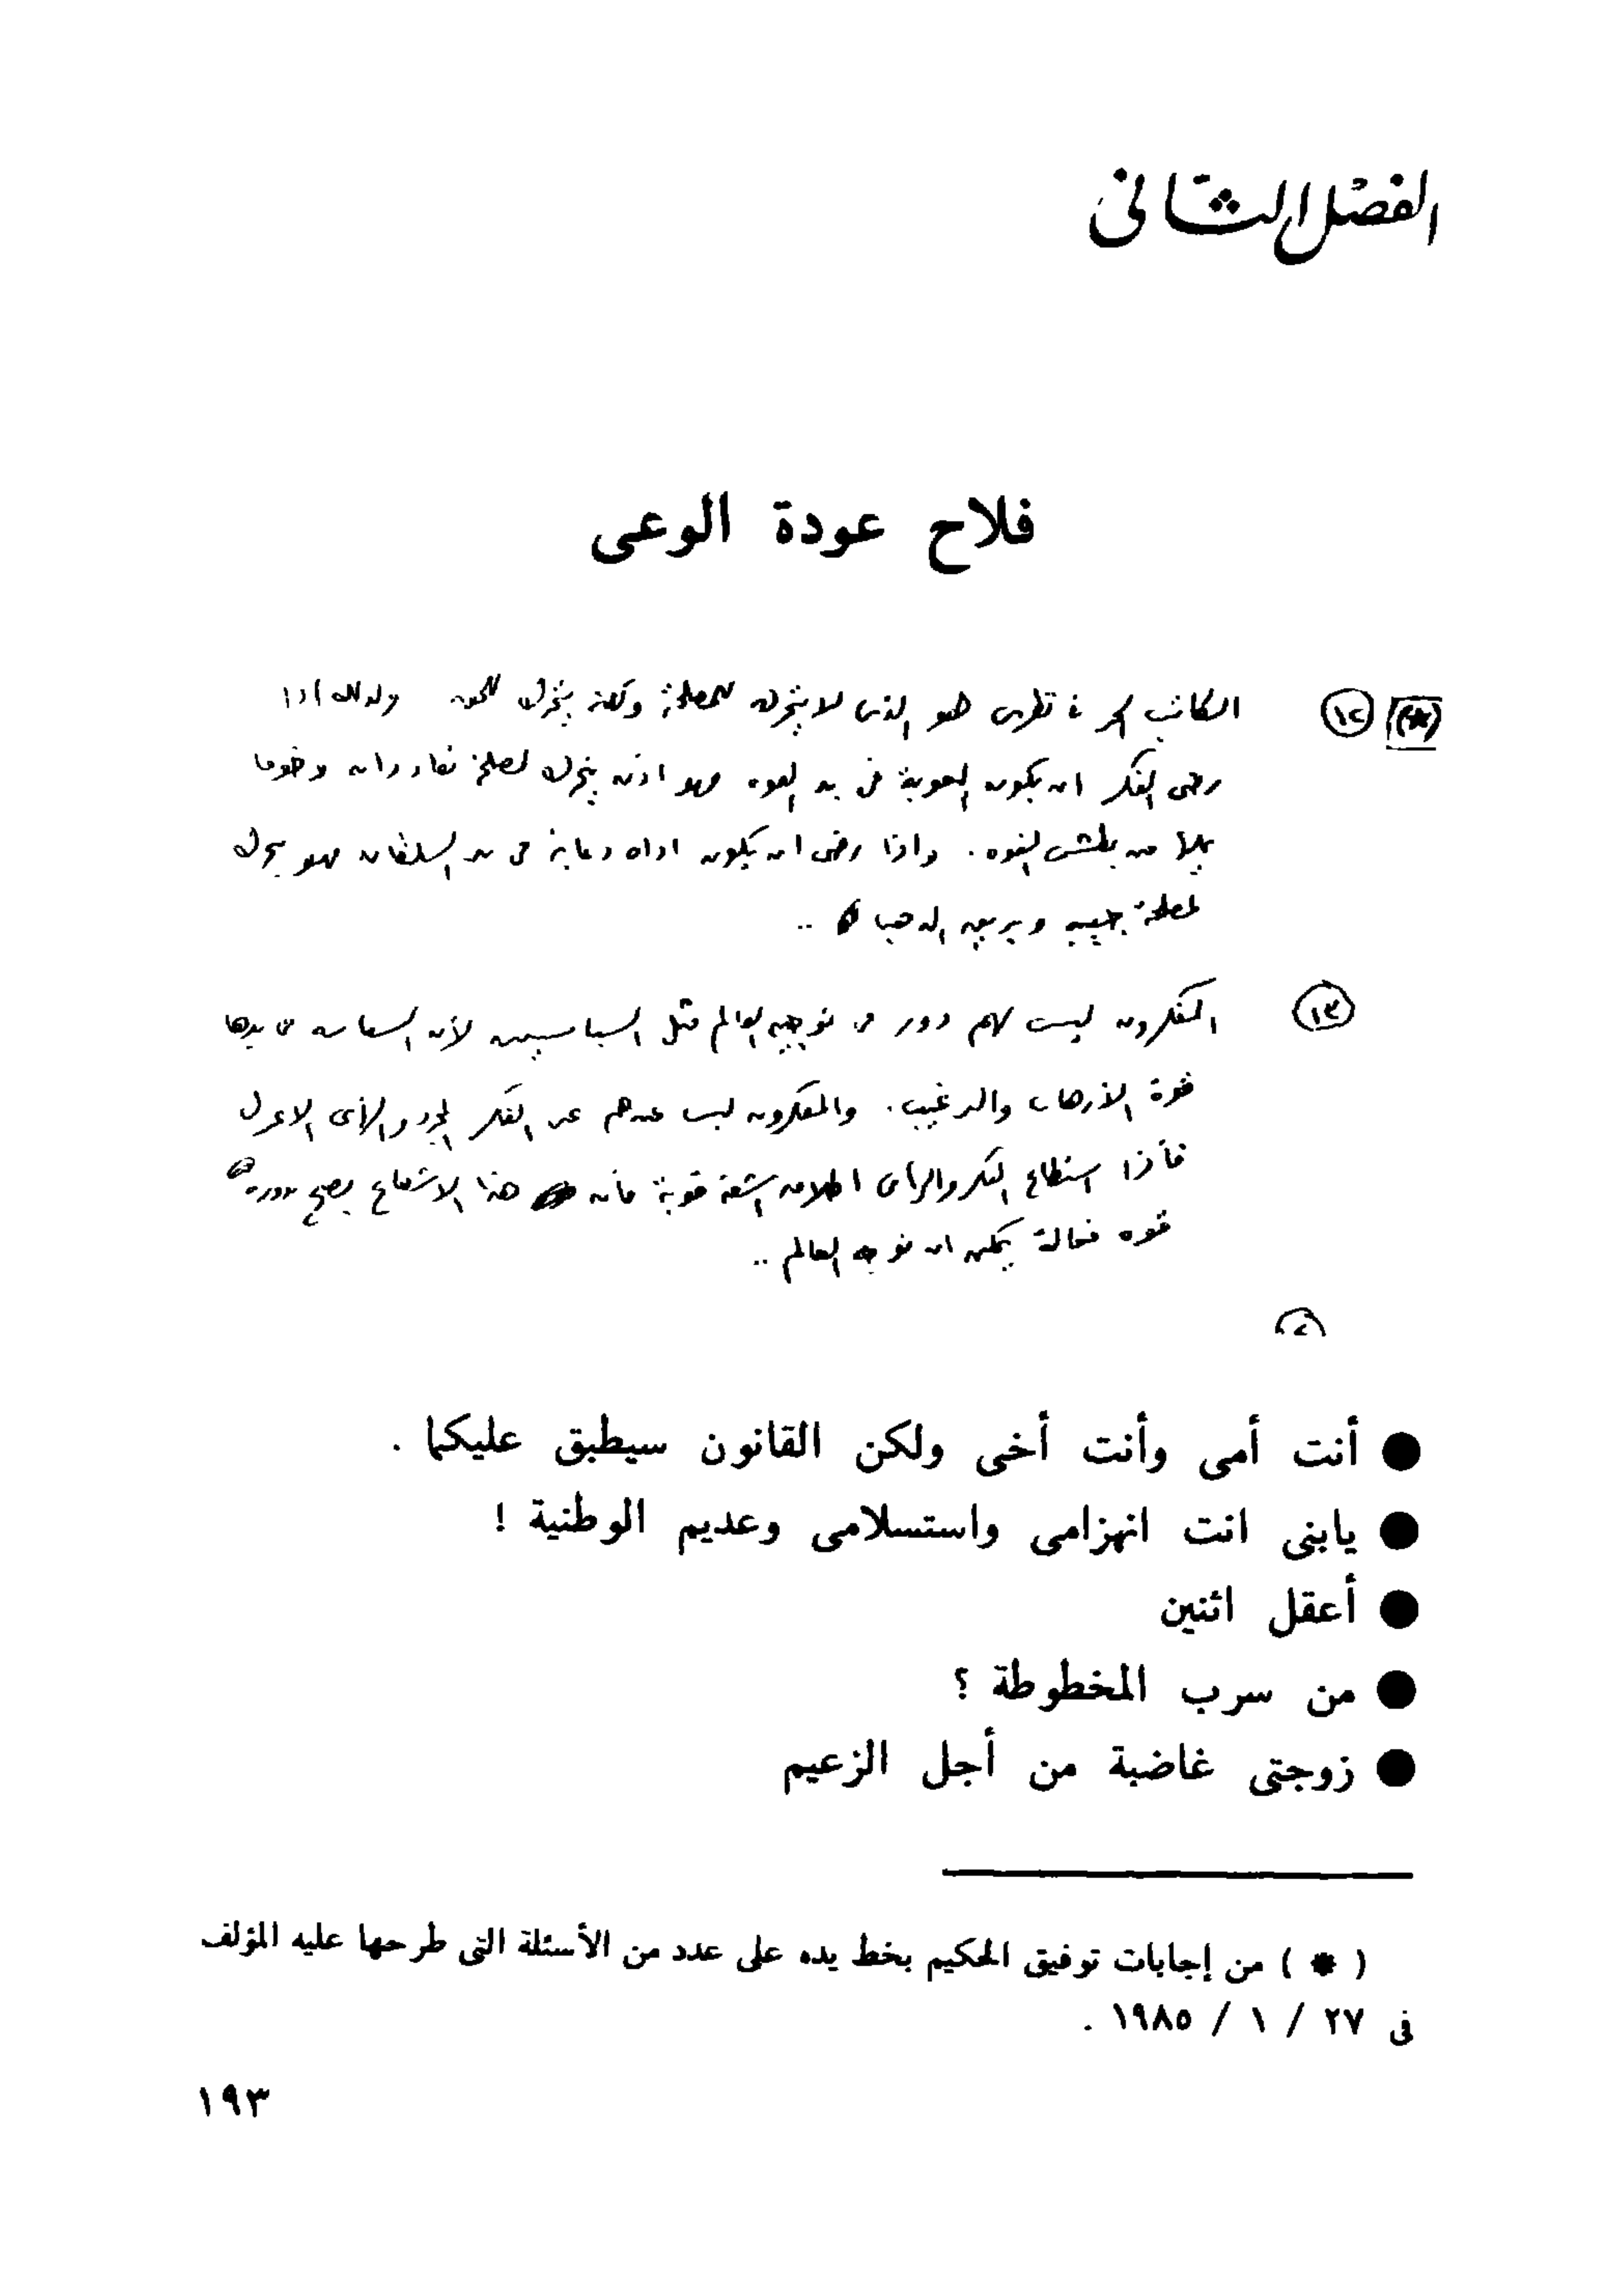 الفصل الثانى
فلاح عودة الوعى
(*) ١٢ الكاتب الحر فى نظرى هو الذى لا يتحرك للمصلحة ولكنه يتحرك للحق ولذلك اذا
رضى الفكر ان يكون العوبة فى يد القوه فهو اذن يتحرك لمصلحة وخوفا
من بطش القوه . واذا رضى ان يكون اداه دعاية فى يد السلطان فهو يتحرك
لمصلحة جيبه وبريق الذهب ..
١٣ المفكرون ليس لهم دور فى توجيه العالم مثل السياسيين لأن السياسه فى يدها
قوة الارهاب والترغيب . والمفكرون ليس عندهم غير الفكر المجرد والرأى الاعزل
فأذا استطاع الفكر والرأى اطلاق اشعة قوية فأن هذا الاشعاع يصبح بدوره
قوه فعالة يمكن ان توجه العالم ..
● أنت أمى وأنت أخى ولكن القانون سيطبق عليكما .
● يابنى انت انهزامى واستسلامى وعديم الوطنية !
● أعقل اثنين
● من سرب المخطوطة ؟
● زوجتى غاضبة من أجل الزعيم
( * ) من إجابات توفيق الحكيم بخط يده على عدد من الأسئلة التى طرحها عليه المؤلف
فى ٢٧ / ١ / ١٩٨٥ .
١٩٣